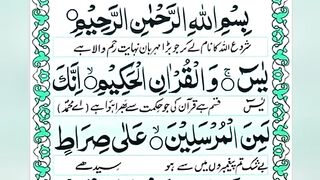 بِسْمِ اللّٰهِ الرَّحْمٰنِ الرَّحِيْمِ
شروع اللہ کا نام لے کر جو بڑا مہربان نہایت رحم والا ہے
يٰسٓ ۚ وَالْقُرْاٰنِ الْحَكِيْمِ ۙ اِنَّكَ
یٰسٓ قسم ہے قرآن کی جو حکمت سے بھرا ہوا ہے (اے محمدؐ)
لَمِنَ الْمُرْسَلِيْنَ ۙ عَلٰى صِرَاطٍ
بےشک تم پیغمبروں میں سے ہو سیدھے